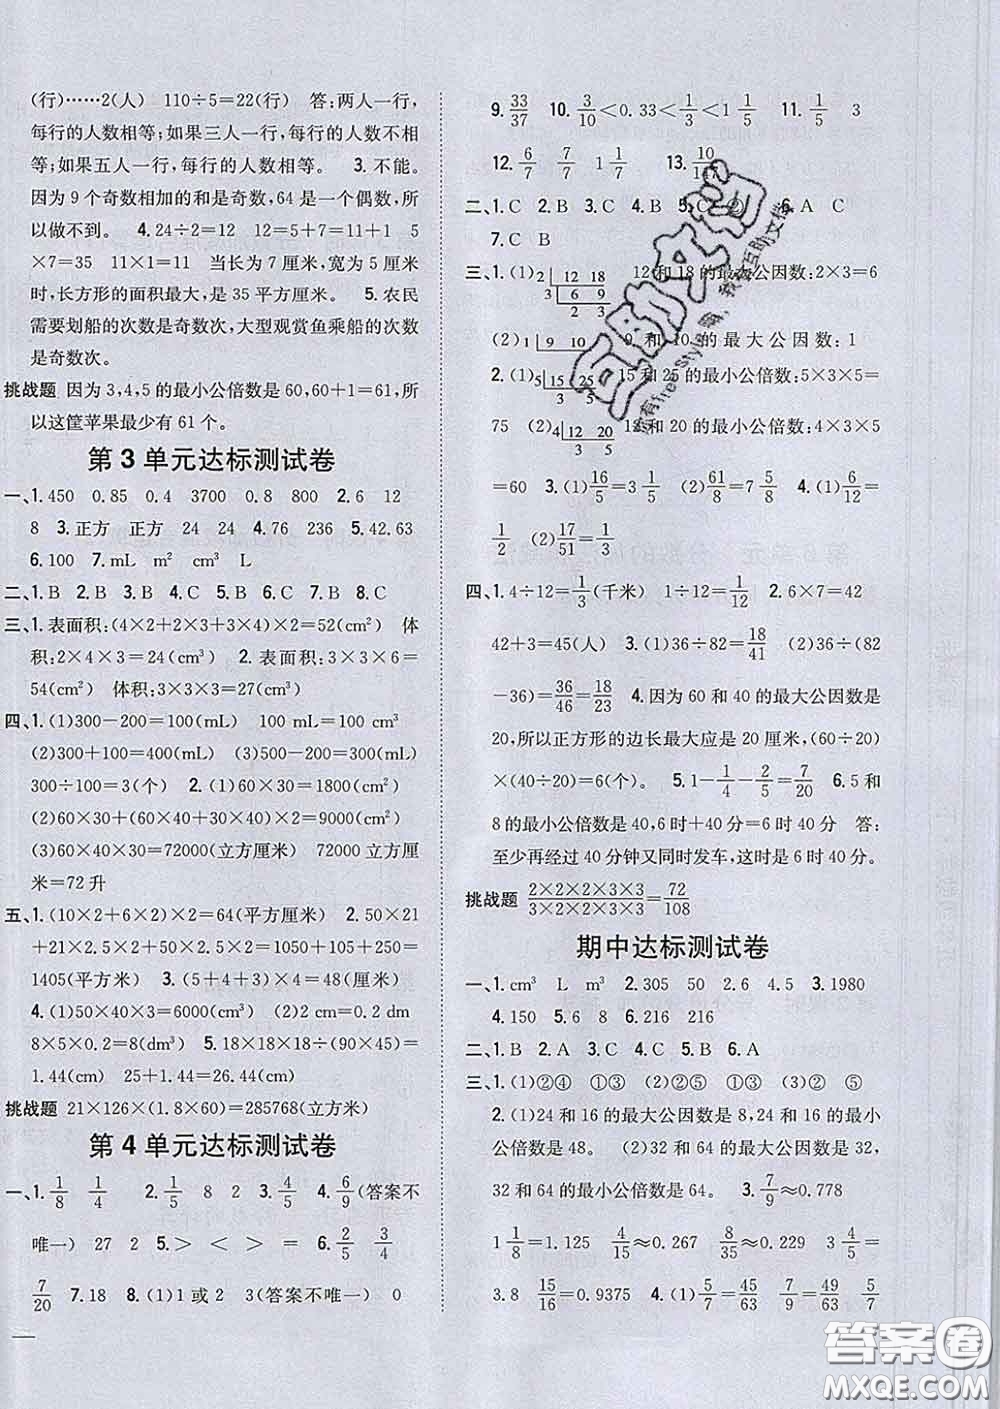 (行)……2(人) 110÷5=22(行) 答:两人一行,
每行的人数相等;如果三人一行,每行的人数不相
等;如果五人一行,每行的人数相等。 3. 不能。
因为 9 个奇数相加的和是奇数,64 是一个偶数,所
以做不到。 4. 24÷2=12 12=5+7=11+1 5
×7=35 11×1=11 当长为 7 厘米,宽为 5 厘米
时,长方形的面积最大,是 35 平方厘米。 5. 农民
需要划船的次数是奇数次,大型观赏鱼乘船的次数
是奇数次。
挑战题 因为 3,4,5 的最小公倍数是 60,60+1=61,所
以这筐苹果最少有 61 个。
第 3 单元达标测试卷
一、1. 450 0.85 0.4 3700 0.8 800 2. 6 12
8 3. 正方 正方 24 24 4. 76 236 5. 42.63
6. 100 7. mL m² cm³ L
二、1. B 2. B 3. B 4. C 5. B 6. C 7. B 8. C
三、1. 表面积:(4×2+2×3+3×4)×2=52(cm²) 体
积:2×4×3=24(cm³) 2. 表面积:3×3×6=
54(cm²) 体积:3×3×3=27(cm³)
四、1. (1)300-200=100(mL) 100 mL=100 cm³
(2)300+100=400(mL) (3)50×2=100(mL)
300÷100=3(个) 2. (1)60×30=1800(cm²)
(2)60×30+(60×40+30×40)×2=9000(cm²)
(3)60×30×40=72000(立方厘米) 72000 立方厘
米=72 升
五、1. (10×2+6×2)×2=64(平方厘米) 2. 50×21
+21×2.5×2+50×2.5×2=1050+105+250=
1405(平方米) 3. (5+4+3)×4=48(分米)
4. (1)50×40×3=6000(cm³) (2)2 cm=0.2 dm
8×5×0.2=8(dm³) 5. 18×18×18÷(90×45)=
1.44(cm) 25+1.44=26.44(cm)
挑战题 21×126×(1.8×60)=285768(立方米)
第 4 单元达标测试卷
一、1. 1/8 1/4 2. 1/5 8 2 3. 4/5 4. 6/9(答案不
唯一) 27 2 5. > < > = 6. 2/5 3/4
7/20 7. 18 8. (1)1 或 2 3(答案不唯一) 0
9. 33/37 10. 3/10<0.33<1/3<1 1/5 11. 1/5 3
12. 6/7 7/7 1 1/7 13. 10/
二、1. C 2. B 3. C 4. C 5. C 6. A C
7. C B
三、1. (1) 2 12 18 12 和 18 的最大公因数:2×3=6
3 6 9
2 3
(2) 1 9 10 9 和 10 的最大公因数:1
9 10
2. (1) 5 15 25 15 和 25 的最小公倍数:5×3×5=
3 5
75 (2) 4 12 20 12 和 20 的最小公倍数:4×3×5
3 5
=60 3. (1)16/5=3 1/5 (2)61/8=7 5/8 4. (1)6/12=
1/2 (2)17/51=1/3
四、1. 4÷12=1/3(千米) 1÷12=1/12 2. 6×7=42
42+3=45(人) 3. (1)36÷82=18/41 (2)36÷(82
-36)=36/46=18/23 4. 因为 60 和 40 的最大公因数是
20,所以正方形的边长最大应是 20 厘米,(60÷20)
×(40÷20)=6(个)。 5. 1-1/4-2/5=7/20 6. 5 和
8 的最小公倍数是 40,6 时+40 分=6 时 40 分 答:
至少再经过 40 分钟又同时发车,这时是 6 时 40 分。
挑战题 2×2×2×3×3/3×2×2×3×3=72/108
期中达标测试卷
一、1. cm³ L m³ 2. 305 50 2.6 4.5 3. 1980
4. 150 5. 6 8 6. 216 216
二、1. B 2. A 3. C 4. B 5. B 6. A
三、1. (1)②④ ①③ (2)①③④ ② ⑤
2. (1)24 和 16 的最大公因数是 8,24 和 16 的最小
公倍数是 48。 (2)32 和 64 的最大公因数是 32,
32 和 64 的最小公倍数是 64。 3. 7/9≈0.778
1 1/8=1.125 4/15≈0.267 8/35≈0.229 3 4/5=
3.8 15/16=0.9375 4. (1)5/7=45/63 7/9=49/63 5/7
互助文档
答案圈
MXQE.COM